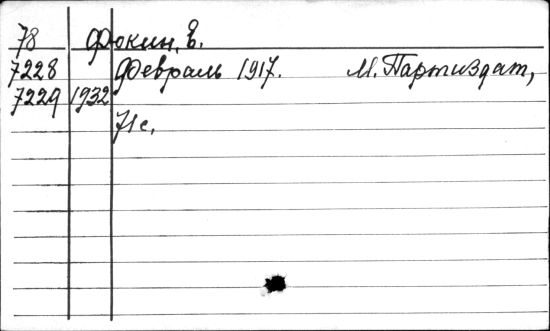 78 Фокин, Е.
7228 Февраль 1917. М. Партиздат,
7229 1932
71 с.